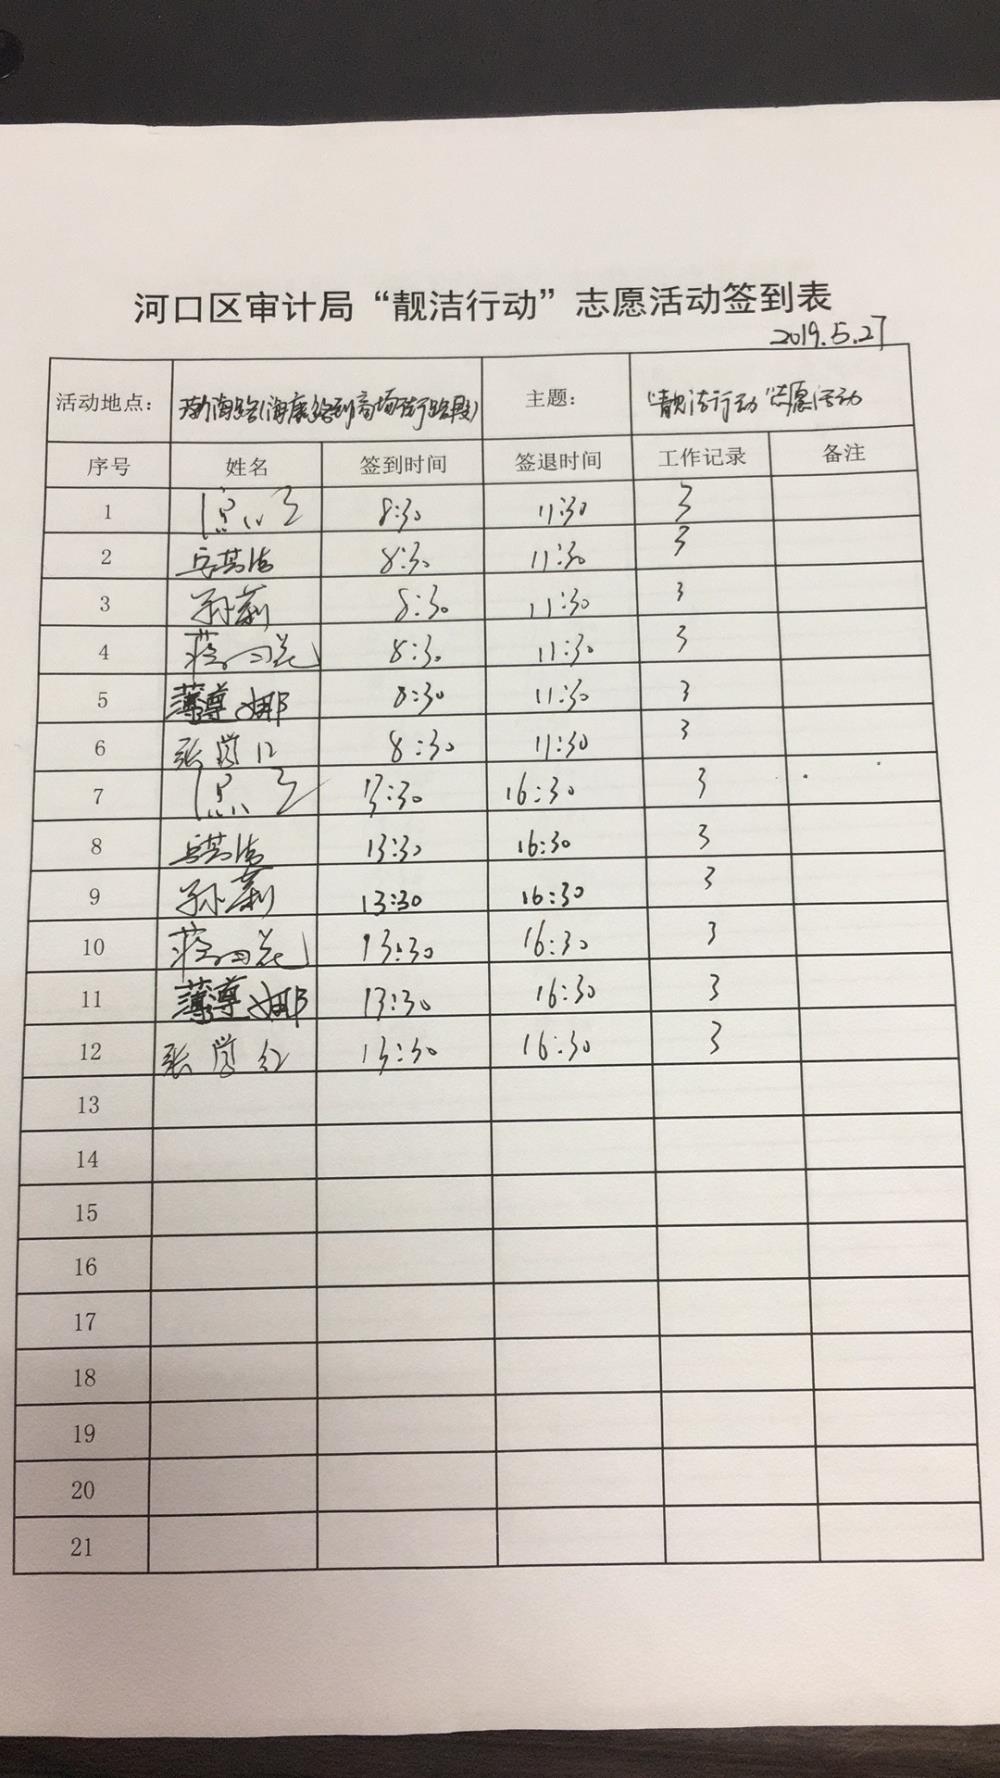 河口区审计局“靓洁行动”志愿活动签到表
2019.5.27
活动地点： 渤海路(海康路到商场街路段) 主题： “靓洁行动”志愿活动
序号 姓名 签到时间 签退时间 工作记录 备注
1 8:30 11:30 3
2 8:30 11:30 3
3 孙莉 8:30 11:30 3
4 8:30 11:30 3
5 薄尊娜 8:30 11:30 3
6 张学红 8:30 11:30 3
7 13:30 16:30 3
8 13:30 16:30 3
9 孙莉 13:30 16:30 3
10 13:30 16:30 3
11 薄尊娜 13:30 16:30 3
12 张学红 13:30 16:30 3
13
14
15
16
17
18
19
20
21